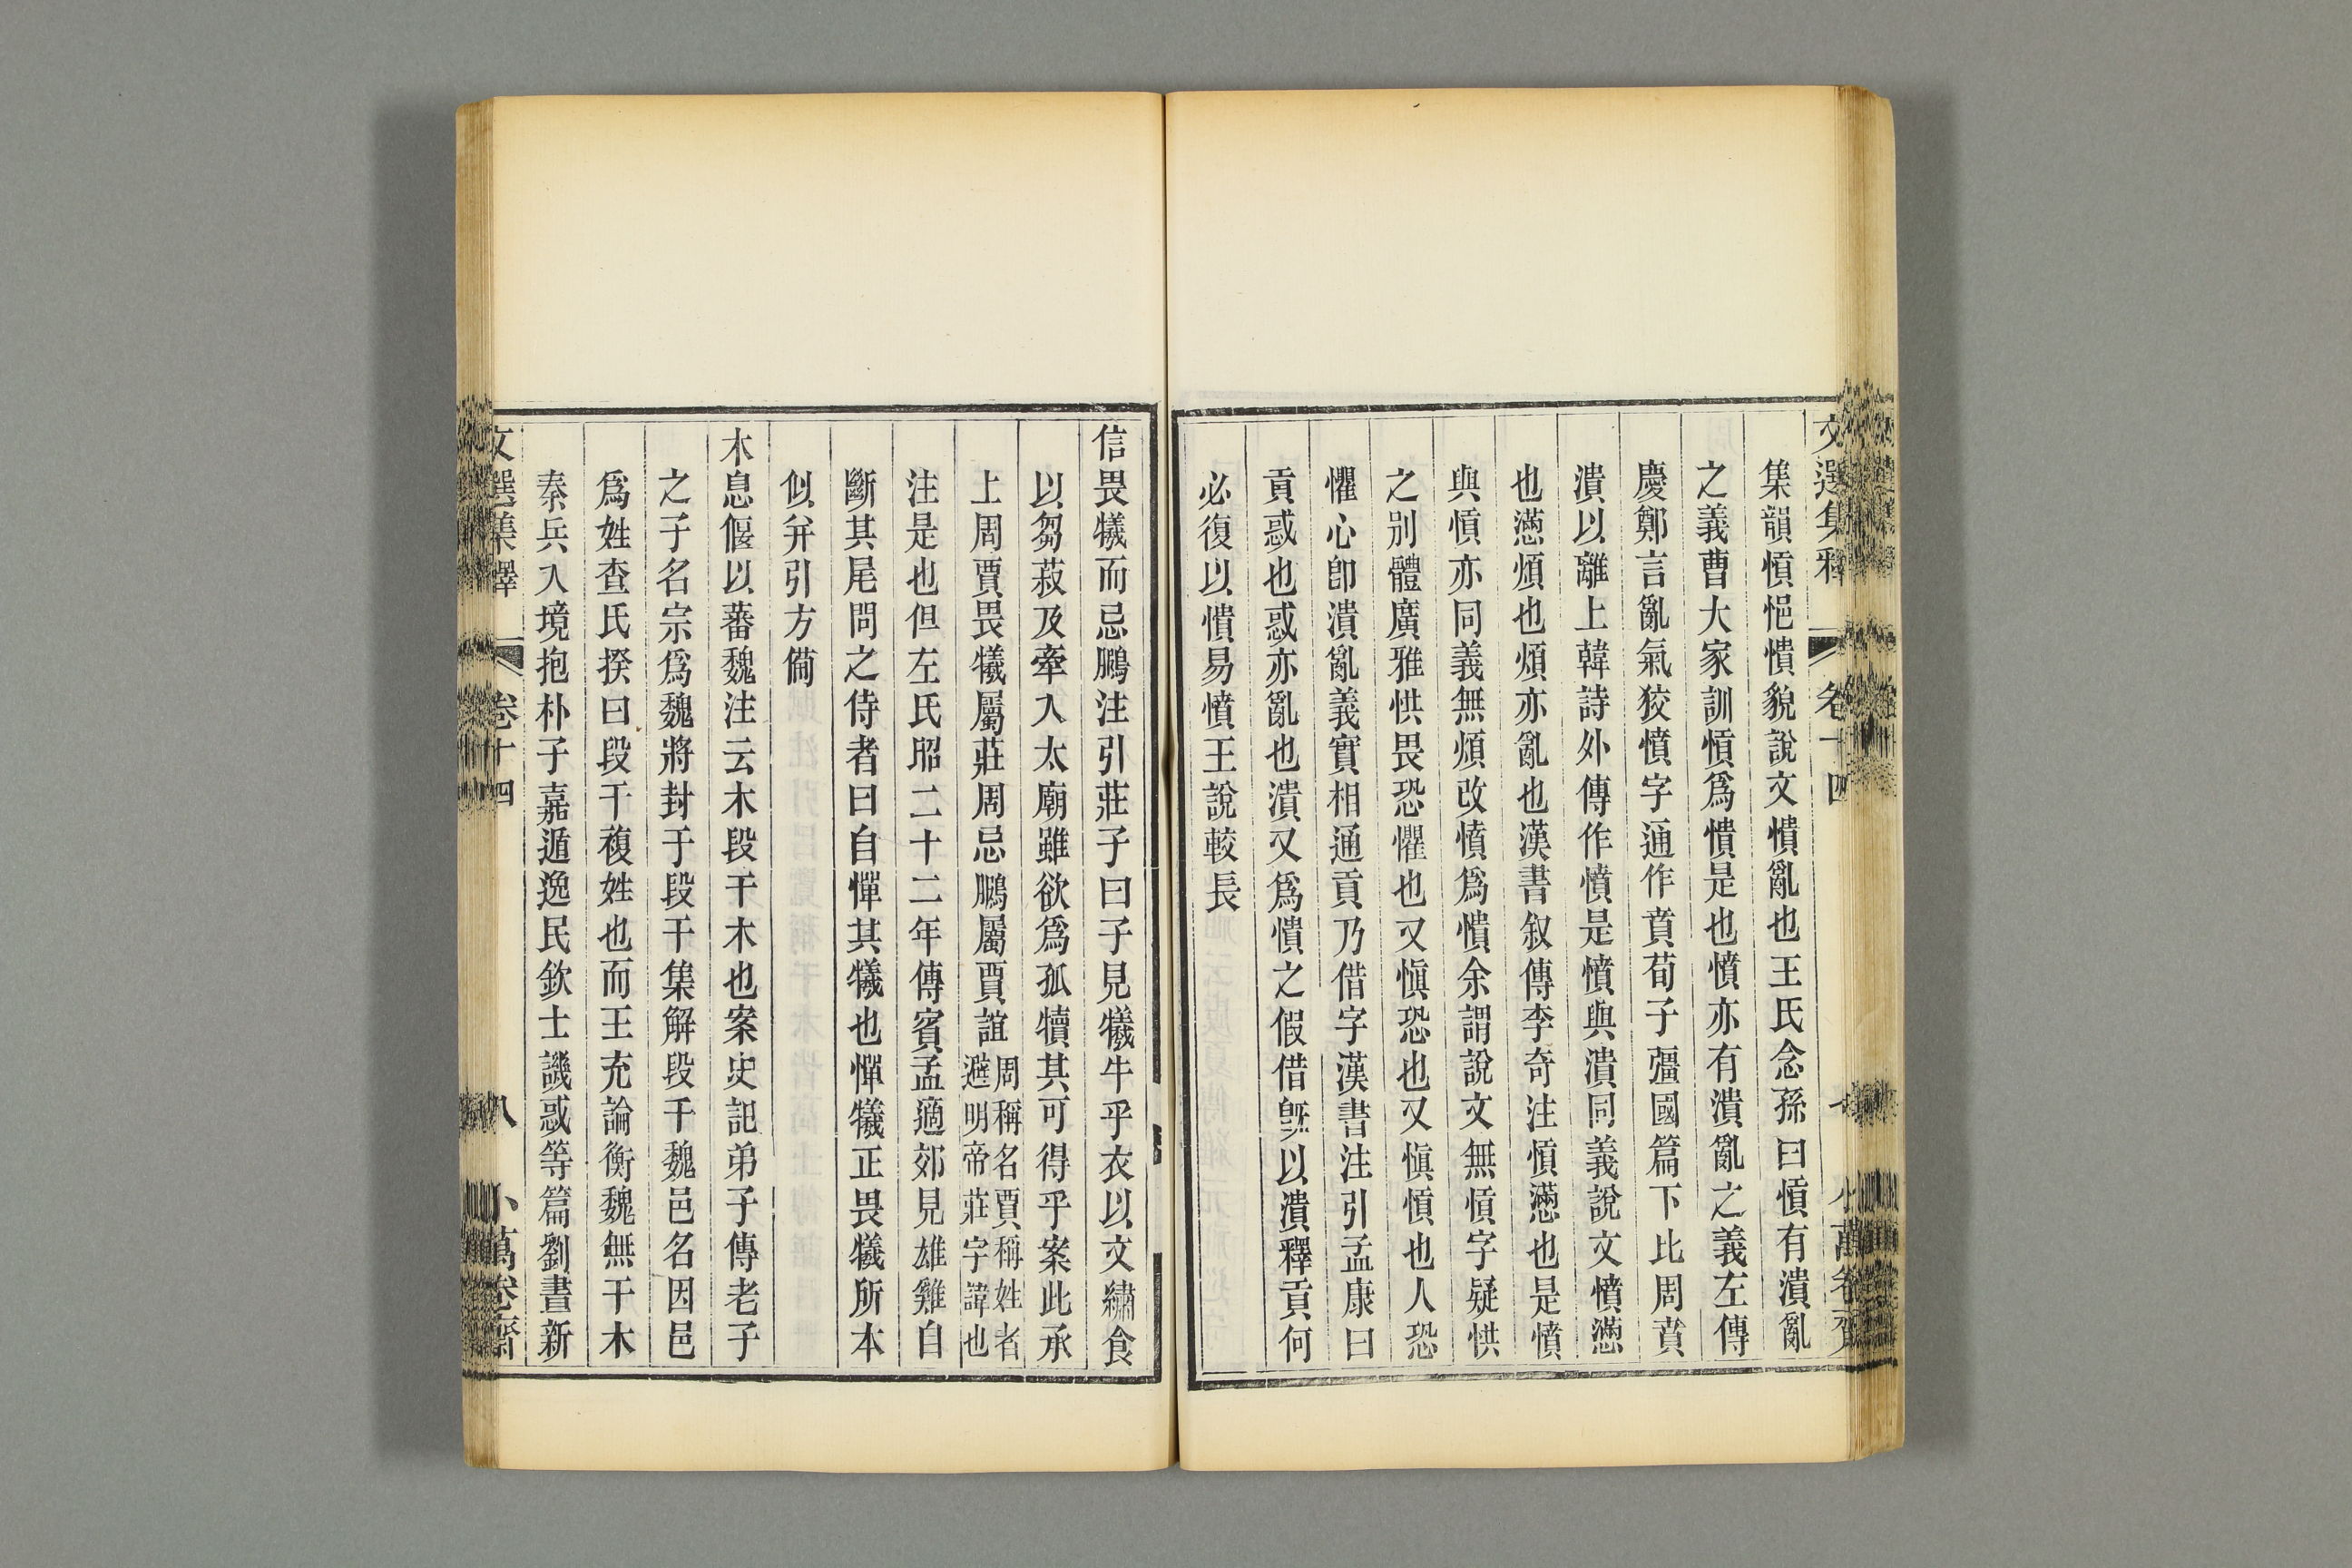 文選集釋 卷十四 七 小萬卷齋
集韻愩悒憒貌說文憒亂也王氏念孫曰愩有潰亂
之義曹大家訓愩爲憒是也憤亦有潰亂之義左傳
慶鄭言亂氣狡憤字通作賁荀子彊國篇下比周賁
潰以離上韓詩外傳作憤是憤與潰同義說文憤懣
也懣煩也煩亦亂也漢書叙傳李奇注愩懣也是憤
與愩亦同義無煩改憤爲憒余謂說文無愩字疑㤨
之別體廣雅㤨畏恐懼也又愼恐也又愼愩也人恐
懼心卽潰亂義實相通貢乃借字漢書注引孟康曰
貢惑也惑亦亂也潰又爲憒之假借旣以潰釋貢何
必復以憒易憤王說較長
信畏犧而忌鵩注引莊子曰子見犧牛乎衣以文繡食
以芻菽及牽入太廟雖欲爲孤犢其可得乎案此承
上周賈畏犧屬莊周忌鵩屬賈誼周稱名賈稱姓者避明帝莊字諱也
注是也但左氏昭二十二年傳賓孟適郊見雄雞自
斷其尾問之侍者曰自憚其犧也憚犧正畏犧所本
似幷引方備
木息偃以蕃魏注云木段干木也案史記弟子傳老子
之子名宗爲魏將封于段干集解段干魏邑名因邑
爲姓查氏揆曰段干複姓也而王充論衡魏無干木
秦兵入境抱朴子嘉遁逸民欽士譏惑等篇劉晝新
文選集釋 卷十四 八 小萬卷齋